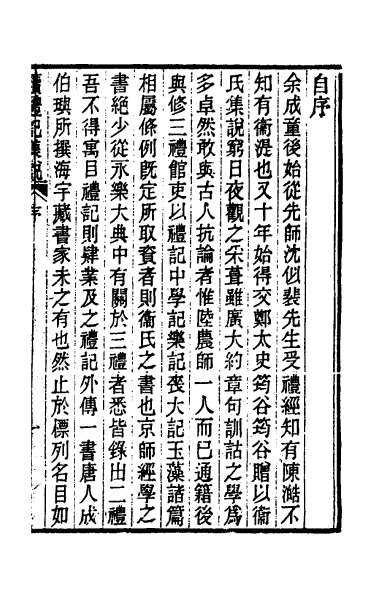 自序
余成童後始從先師沈似裴先生受禮經知有陳澔不
知有衞湜也又十年始得交鄭太史筠谷筠谷贈以衞
氏集說窮日夜觀之采葺雖廣大約章句訓詁之學爲
多卓然敢與古人抗論者惟陸農師一人而已通籍後
與修三禮館吏以禮記中學記樂記喪大記玉藻諸篇
相屬條例旣定所取資者則衞氏之書也京師經學之
書絶少從永樂大典中有關於三禮者悉皆錄出二禮
吾不得寓目禮記則肄業及之禮記外傳一書唐人成
伯璵所撰海宇藏書家未之有也然止於標列名目如
禮記集說
序
一